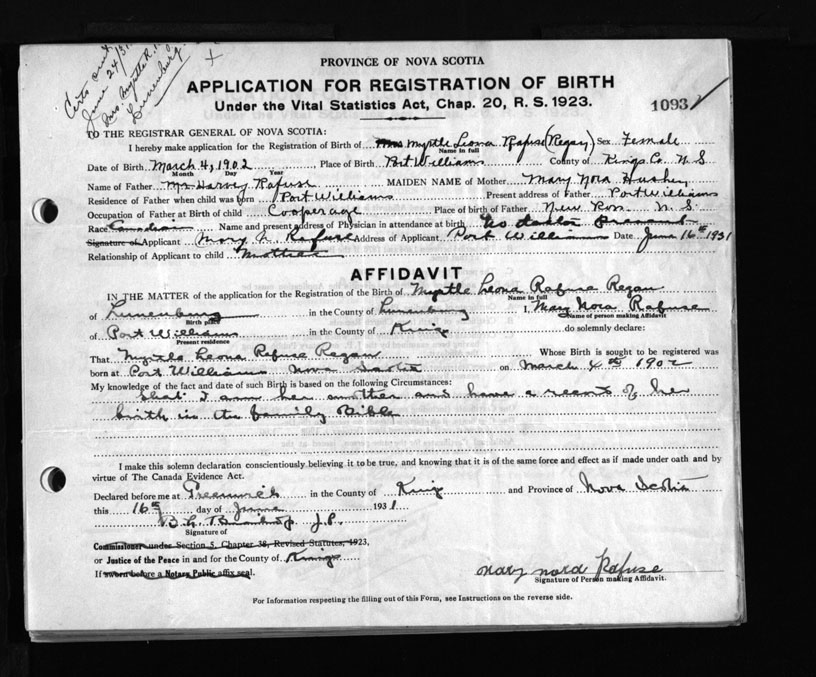 Certs sent
June 24/31
Mrs. Myrtle R.
Lunenburg
PROVINCE OF NOVA SCOTIA
APPLICATION FOR REGISTRATION OF BIRTH
Under the Vital Statistics Act, Chap. 20, R. S. 1923.
1093
TO THE REGISTRAR GENERAL OF NOVA SCOTIA:
I hereby make application for the Registration of Birth of Mrs Myrtle Leona Rafuse (Regan) Sex Female
Name in full
Date of Birth March 4, 1902 Place of Birth Port Williams County of Kings Co. N. S
Month Day Year
Name of Father Mr Harvey Rafuse MAIDEN NAME of Mother Mary Nora
Residence of Father when child was born Port Williams Present address of Father Port Williams
Occupation of Father at Birth of child Cooperage Place of birth of Father New Ross N. S.
Race Canadian Name and present address of Physician in attendance at birth No doctor present
Signature of Applicant Mary N. Rafuse Address of Applicant Port Williams Date June 16th 1931
Relationship of Applicant to child Mother
AFFIDAVIT
IN THE MATTER of the application for the Registration of the Birth of Myrtle Leona Rafuse Regan
Name in full
of Lunenburg in the County of Lunenburg I, Mary Nora Rafuse
Birth place Name of person making Affidavit
of Port Williams in the County of Kings do solemnly declare:
Present residence
That Myrtle Leona Rafuse Regan Whose Birth is sought to be registered was
born at Port Williams Nova Scotia on March 4th 1902
My knowledge of the fact and date of such Birth is based on the following Circumstances:
that I am her mother and have a record of her
birth in the family Bible
I make this solemn declaration conscientiously believing it to be true, and knowing that it is of the same force and effect as if made under oath and by
virtue of The Canada Evidence Act.
Declared before me at Greenwich in the County of Kings and Province of Nova Scotia
this 16th day of June 1931
B. H. J.P.
Signature of
Commissioner under Section 5, Chapter 38, Revised Statutes, 1923,
or Justice of the Peace in and for the County of Kings
If sworn before a Notary Public affix seal.
Mary Nora Rafuse
Signature of Person making Affidavit.
For Information respecting the filling out of this Form, see Instructions on the reverse side.